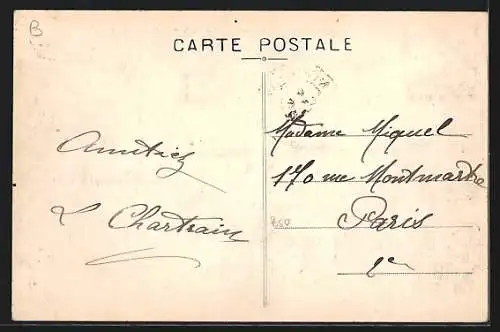 B
CARTE POSTALE
Amitiés
L Chartrain
Madame Miquel
170 rue Montmartre
Paris
2e